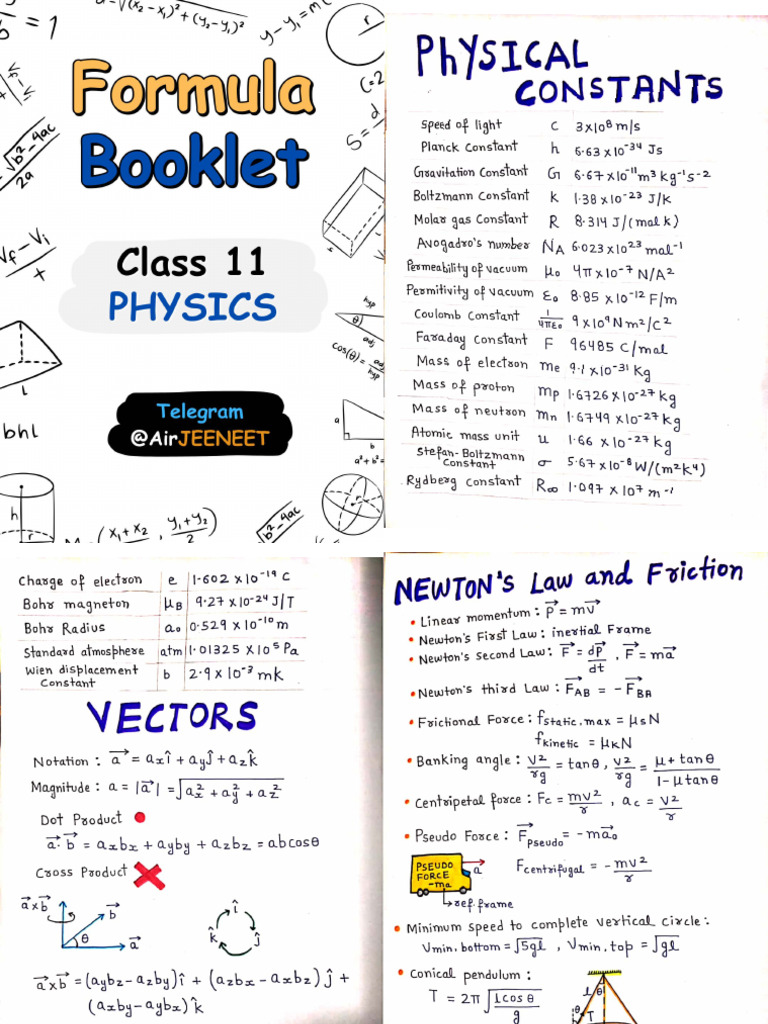 √(x₂-x₁)²+(y₂-y₁)²
y-y₁=m(
= 1
r
Formula
Booklet
Vf-Vi
√b²-4ac
2a
C=2
S= d
Vf-Vi
t
Class 11
PHYSICS
hyp
θ
adj
cos(θ)= adj
hyp
l
bhl
Telegram
@AirJEENEET
a
b
a²+b²=
h
r
r
(x₁+x₂ , y₁+y₂
2)
b²-4ac
PHYSICAL
CONSTANTS
Speed of light C 3×10⁸ m/s
Planck Constant h 6.63×10⁻³⁴ Js
Gravitation Constant G 6.67×10⁻¹¹m³kg⁻¹s⁻²
Boltzmann Constant K 1.38×10⁻²³ J/K
Molar gas Constant R 8.314 J/(mol k)
Avogadro's number NA 6.023×10²³ mol⁻¹
Permeability of vacuum μ₀ 4π×10⁻⁷ N/A²
Permitivity of vacuum ε₀ 8.85×10⁻¹² F/m
Coulomb Constant 1/4πε₀ 9×10⁹Nm²/C²
Faraday Constant F 96485 C/mol
Mass of electron me 9.1×10⁻³¹ Kg
Mass of proton mp 1.6726×10⁻²⁷kg
Mass of neutron mn 1.6749×10⁻²⁷kg
Atomic mass unit u 1.66 ×10⁻²⁷kg
Stefan-Boltzmann
Constant σ 5.67×10⁻⁸W/(m²K⁴)
Rydberg constant R∞ 1.097 ×10⁷ m⁻¹
Charge of electron e 1.602×10⁻¹⁹ C
Bohr magneton μB 9.27×10⁻²⁴J/T
Bohr Radius a₀ 0.529×10⁻¹⁰m
Standard atmosphere atm 1.01325×10⁵Pa
Wien displacement
Constant b 2.9×10⁻³ mk
VECTORS
Notation : a⃗ = axî+ayĵ+azk̂
Magnitude : a=|a⃗|=√ax²+ay²+az²
Dot Product
a⃗.b⃗ = axbx+ayby+azbz=abcosθ
Cross Product
a⃗×b⃗
b⃗
θ
a⃗
î
k̂ ĵ
a⃗×b⃗ =(aybz-azby)î + (azbx-axbz)ĵ+
(axby-aybx)k̂
NEWTON's Law and Friction
• Linear momentum : P⃗=mv⃗
• Newton's First Law : inertial Frame
• Newton's second Law : F⃗ = dP⃗/dt , F⃗=ma⃗
• Newton's third Law : F⃗AB = -F⃗BA
• Frictional Force : fstatic.max = μsN
fkinetic = μkN
• Banking angle : v²/rg = tanθ , v²/rg = μ+tanθ/1-μtanθ
• Centripetal force : Fc = mv²/r , ac = v²/r
• Pseudo Force : F⃗Pseudo = -ma⃗₀
PSEUDO
FORCE
-ma
a
Fcentrifugal = -mv²/r
ref.frame
• Minimum speed to complete vertical circle :
Vmin.bottom=√5gl , Vmin.top=√gl
• Conical pendulum :
T = 2π√lcosθ/g
l θ
θ T